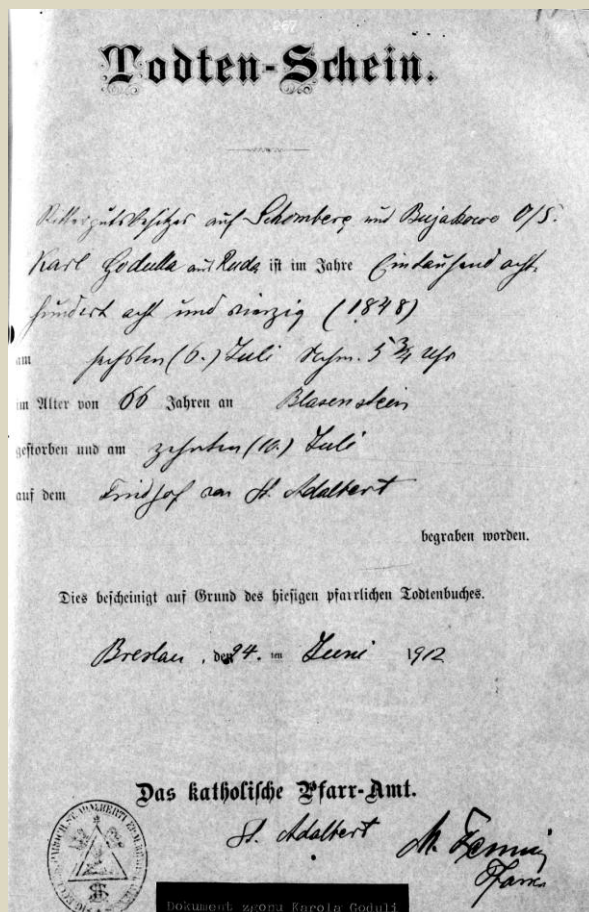 267
Todten-Schein.
Rittergutsbesitzer auf Schomberg und Bujakowo O/S.
Karl Godulla aus Ruda ist im Jahre Eintausend acht
hundert acht und vierzig (1848)
am sechsten (6.) Juli Nchm. 5 3/4 Uhr
im Alter von 66 Jahren an Blasenstein
gestorben und am zehnten (10.) Juli
auf dem Friedhof von St. Adalbert
begraben worden.
Dies bescheinigt auf Grund des hiesigen pfarrlichen Todtenbuches.
Breslau, den 24. ten Juni 1912
Das katholische Pfarr-Amt.
St. Adalbert
Dokument zgonu Karola Goduli